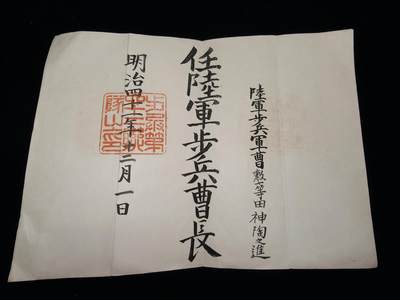 陸軍歩兵軍曹勲八等田神陶之進
任陸軍歩兵曹長
明治四十一年十二月一日